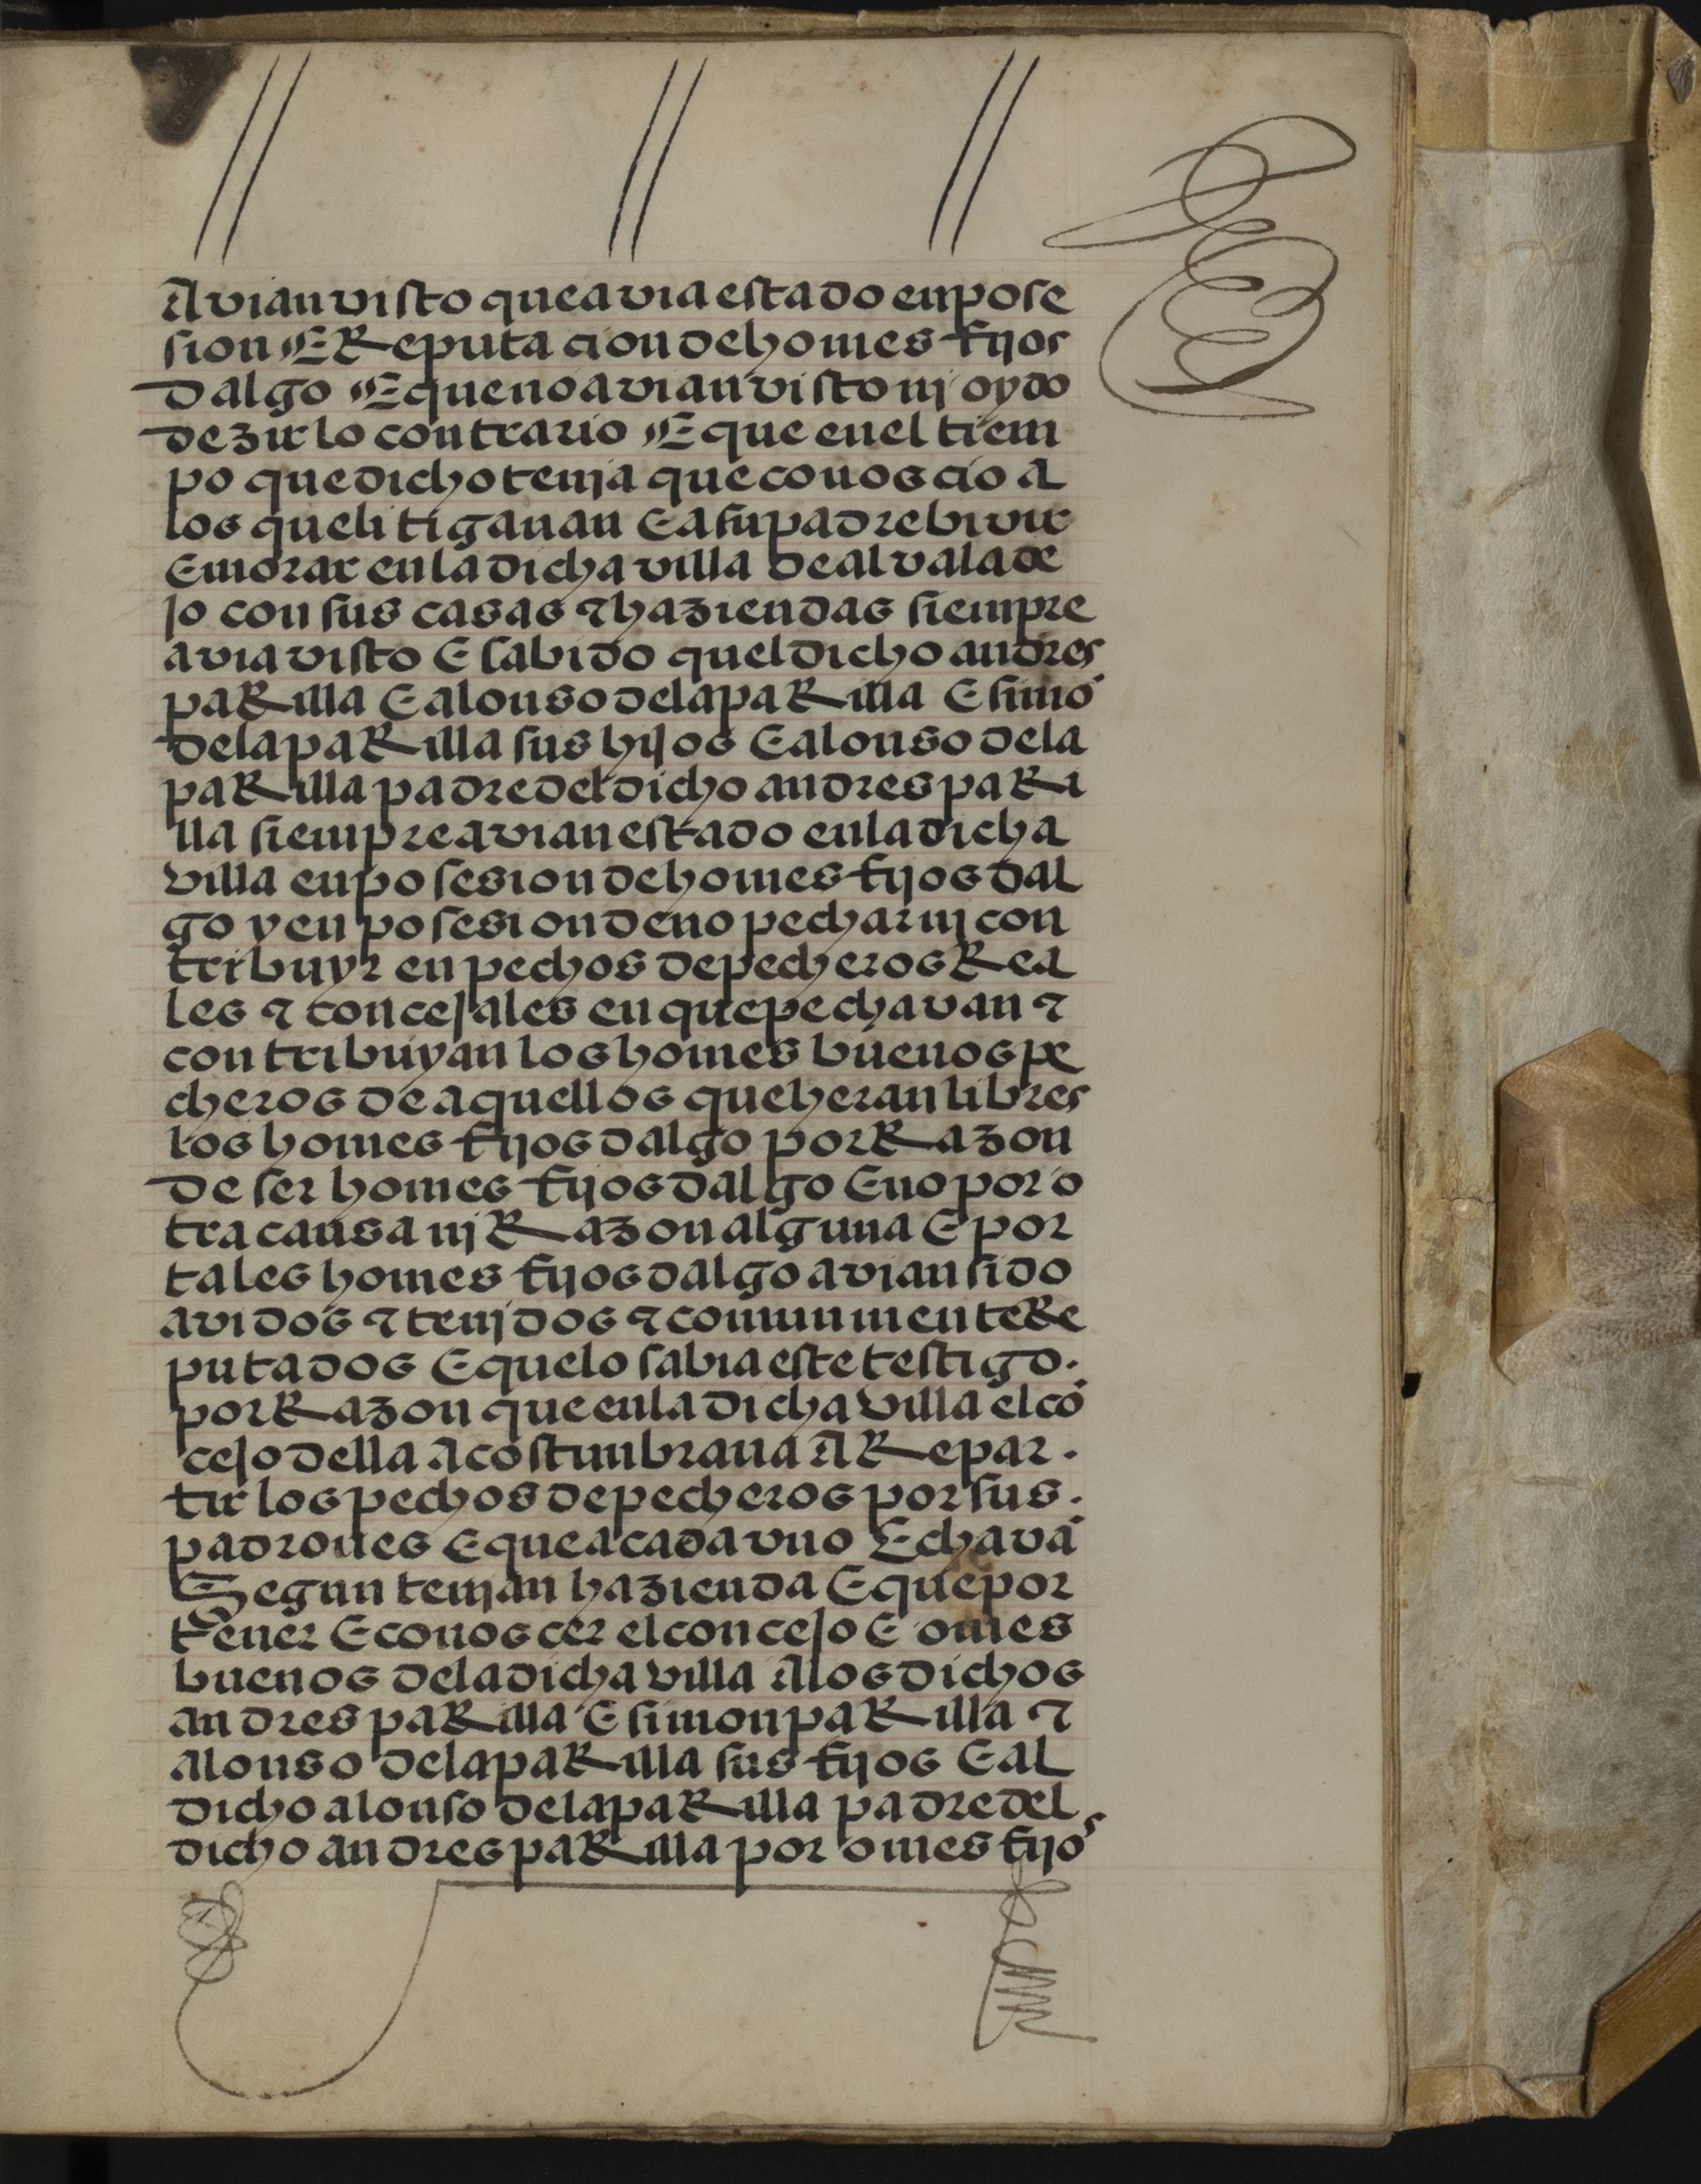 Avian visto que avia estado en pose
sion E Reputacion de homes fijos
dalgo E que no avian visto nj oydo
dezir lo contrario E que en el tiem
po que dicho tenja que conoscio a
los que litigauan E a su padre bivir
E morar en la dicha villa de alvalade
jo con sus casas ⁊ haziendas siempre
avia visto E sabido quel dicho andres
paRilla E alonso de la paRilla E simō
de la paRilla sus hijos E alonso de la
paRilla padre del dicho andres paRi
lla siempre avian estado en la dicha
villa en posesion de homes fijos dal
go y en posesion de no pechar nj con
tribuyr en pechos de pecheros Rea
les ⁊ concejales en que pechavan ⁊
contribuyan los homes buenos pe
cheros de aquellos que heran libres
los homes fijos dalgo por Razon
de ser homes fijos dalgo E no por o
tra causa nj Razon alguna E por
tales homes fijos dalgo avian sido
avidos ⁊ tenjdos ⁊ comunmente Re
putados E que lo sabia este testigo.
por Razon que en la dicha villa el cō
cejo della acostunbraua A Repar.
tir los pechos de pecheros por sus.
padrones E que a cada vno Echavā
Segun tenjan hazienda E que por
tener E conoscer el concejo E omes
buenos de la dicha villa A los dichos
andres paRilla E simon paRilla ⁊
alonso de la paRilla sus fijos E al
dicho alonso de la paRilla padre del
dicho andres paRilla por omes fijos